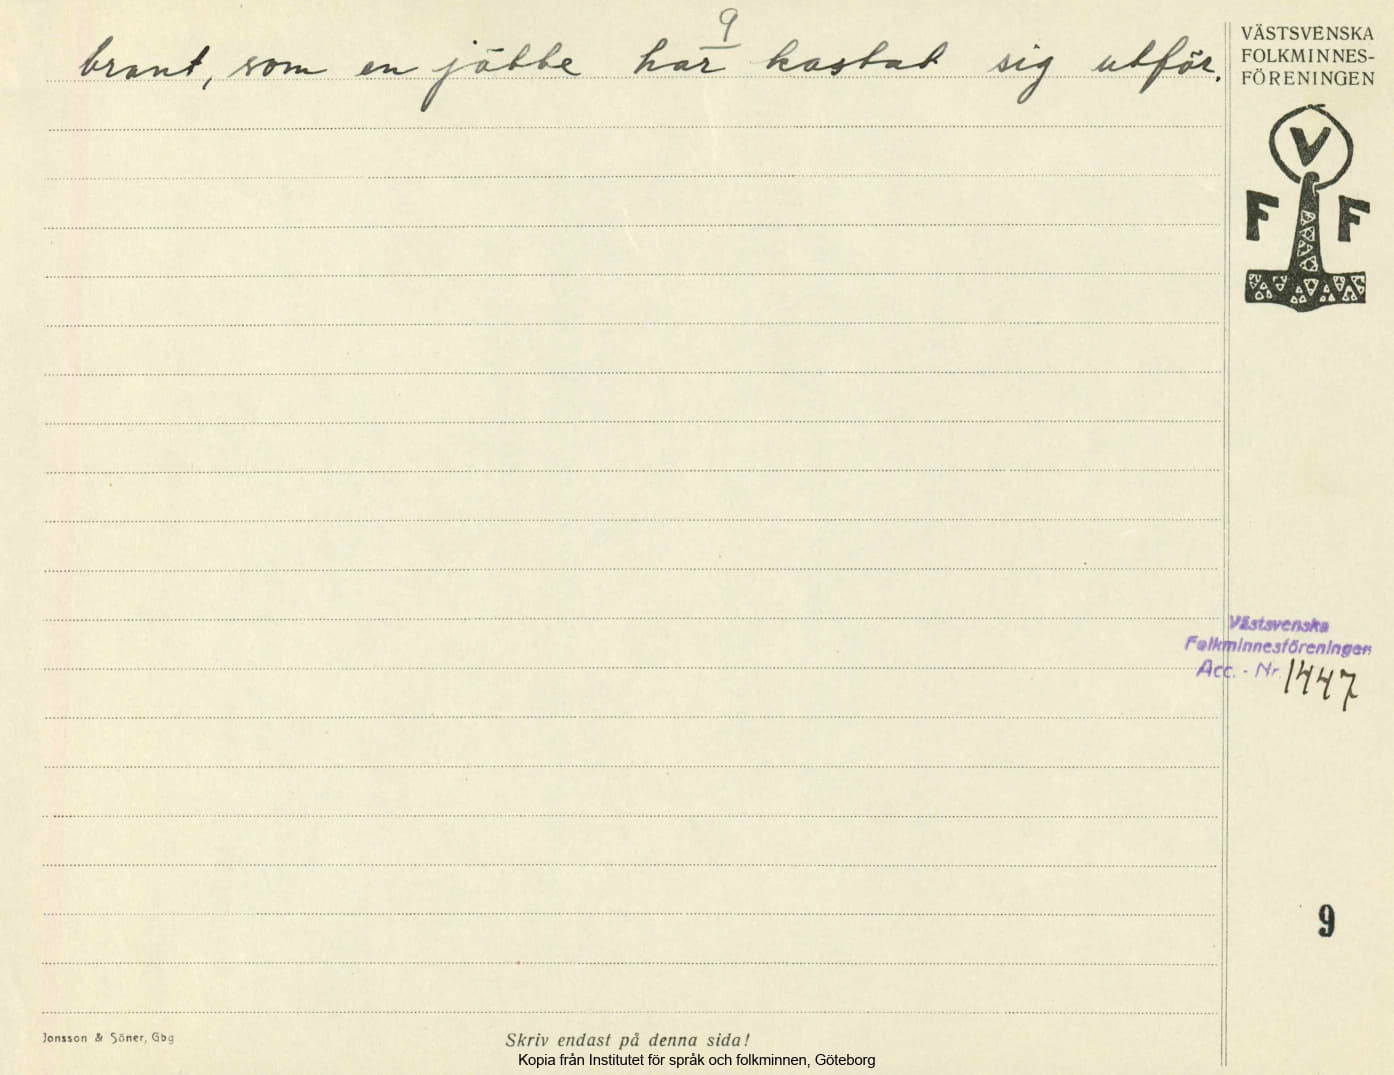 9
brant, som en jätte har kastat sig utför.
VÄSTSVENSKA
FOLKMINNES-
FÖRENINGEN
V
F F
Västsvenska
Folkminnesföreningen
Acc. - Nr. 1447
9
Jonsson & Söner, Gbg
Skriv endast på denna sida!
Kopia från Institutet för språk och folkminnen, Göteborg